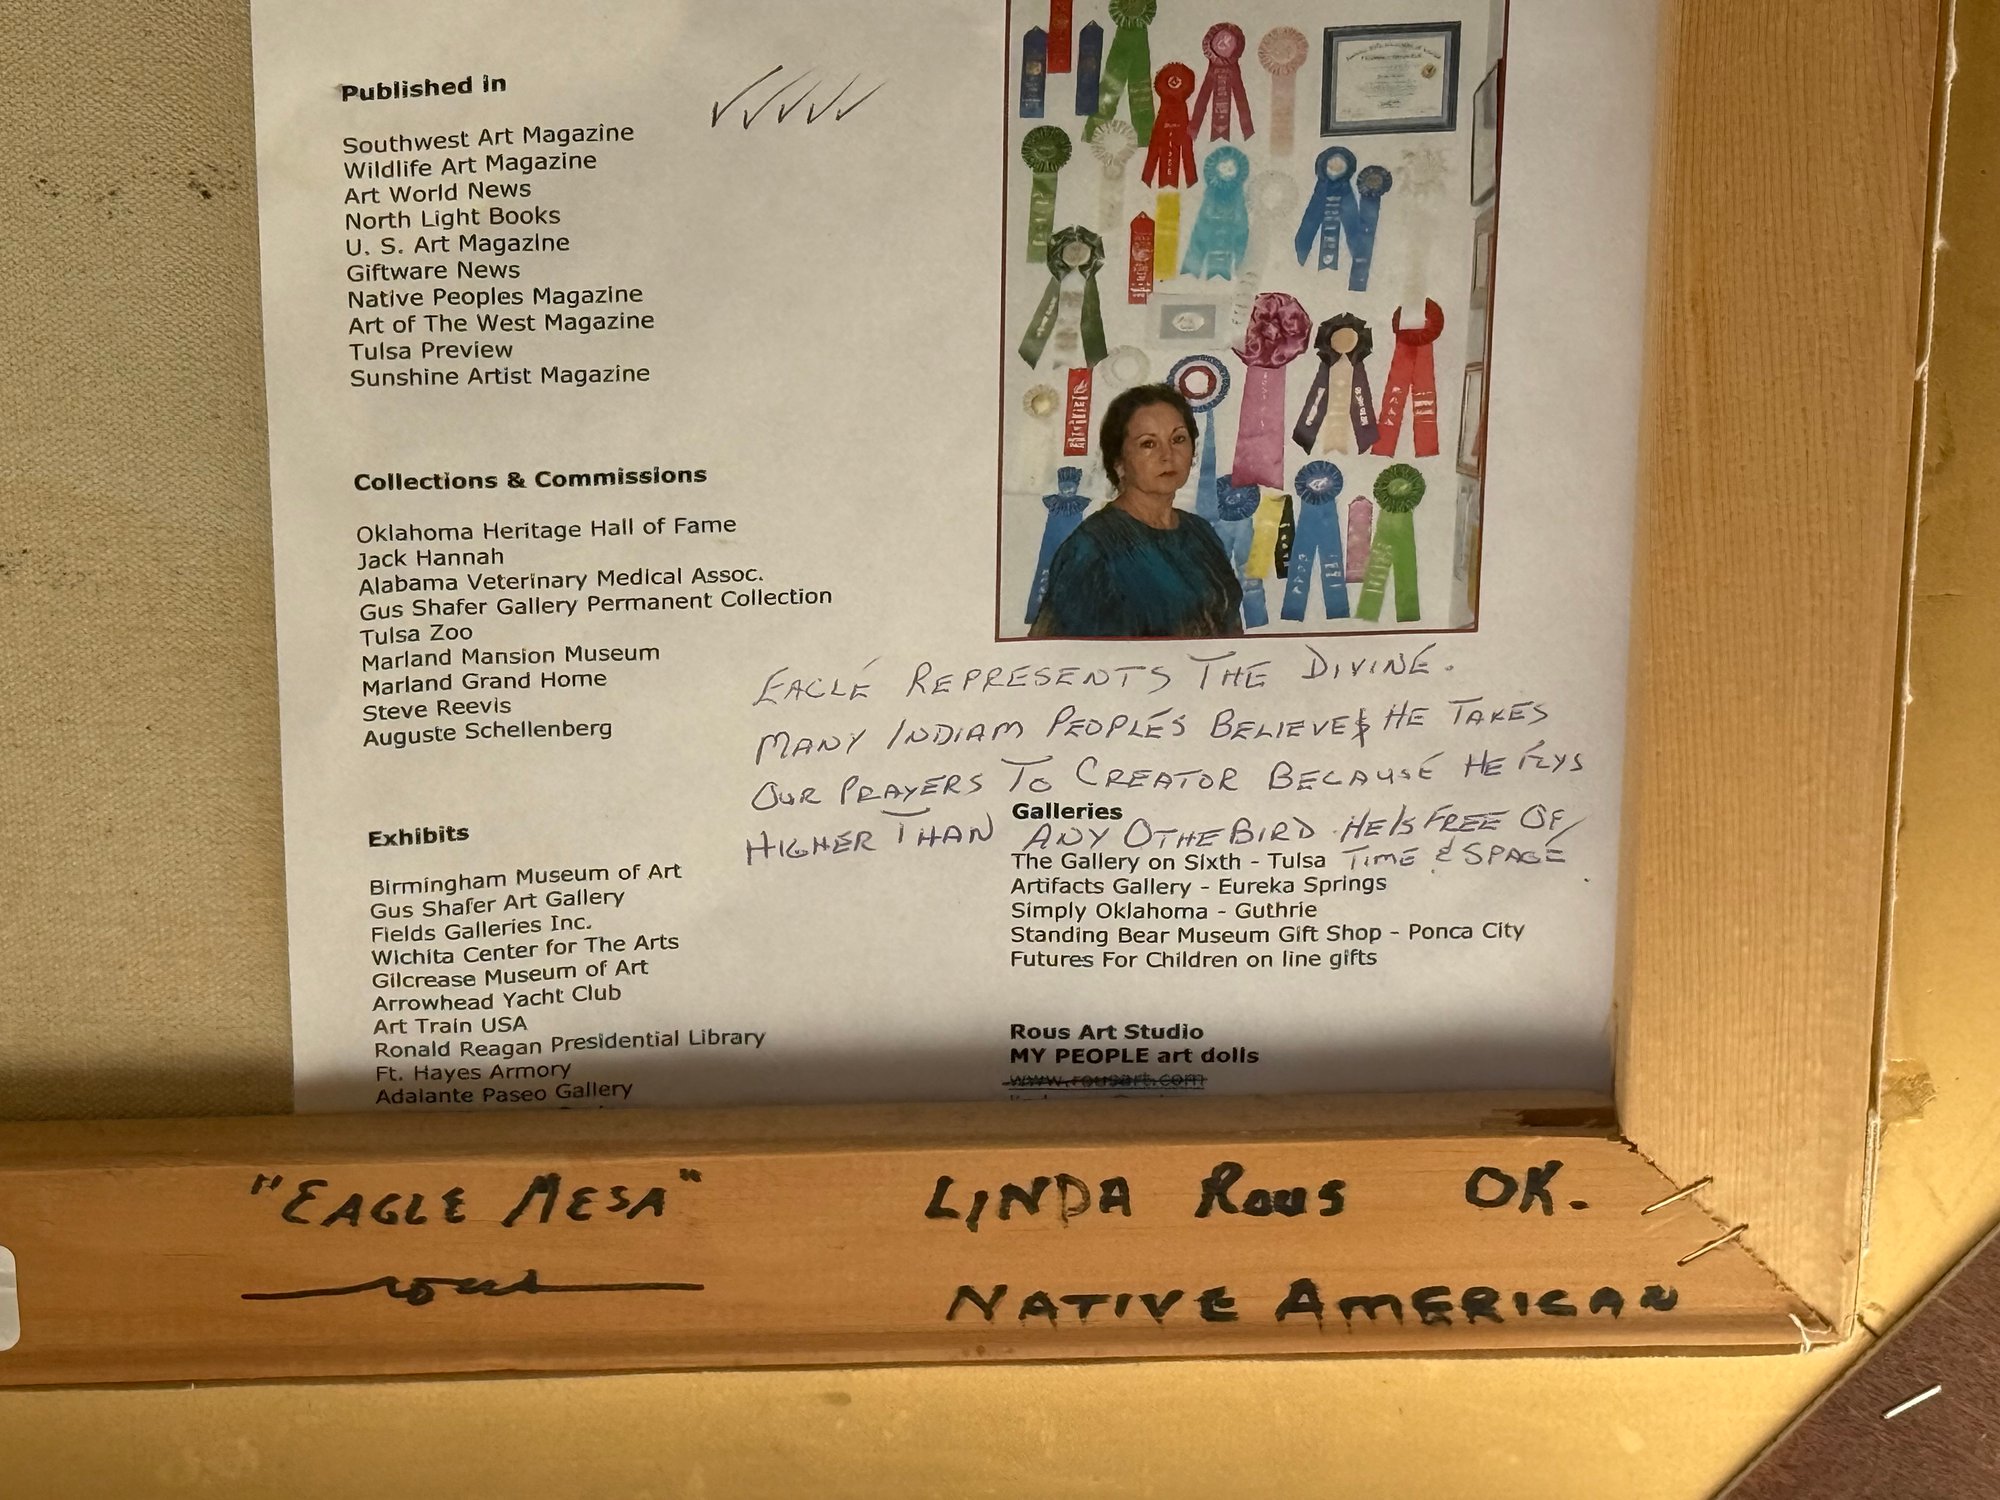 Published in
Southwest Art Magazine
Wildlife Art Magazine
Art World News
North Light Books
U. S. Art Magazine
Giftware News
Native Peoples Magazine
Art of The West Magazine
Tulsa Preview
Sunshine Artist Magazine
Collections & Commissions
Oklahoma Heritage Hall of Fame
Jack Hannah
Alabama Veterinary Medical Assoc.
Gus Shafer Gallery Permanent Collection
Tulsa Zoo
Marland Mansion Museum
Marland Grand Home
Steve Reevis
Auguste Schellenberg
EAGLE REPRESENTS THE DIVINE.
MANY INDIAM PEOPLES BELIEVE HE TAKES
OUR PRAYERS TO CREATOR BECAUSE HE FLYS
HIGHER THAN ANY OTHE BIRD. HE IS FREE OF
TIME & SPACE
Exhibits
Birmingham Museum of Art
Gus Shafer Art Gallery
Fields Galleries Inc.
Wichita Center for The Arts
Gilcrease Museum of Art
Arrowhead Yacht Club
Art Train USA
Ronald Reagan Presidential Library
Ft. Hayes Armory
Adalante Paseo Gallery
Galleries
The Gallery on Sixth - Tulsa
Artifacts Gallery - Eureka Springs
Simply Oklahoma - Guthrie
Standing Bear Museum Gift Shop - Ponca City
Futures For Children on line gifts
Rous Art Studio
MY PEOPLE art dolls
www.rousart.com
"EAGLE MESA" LINDA ROUS OK.
rous NATIVE AMERICAN